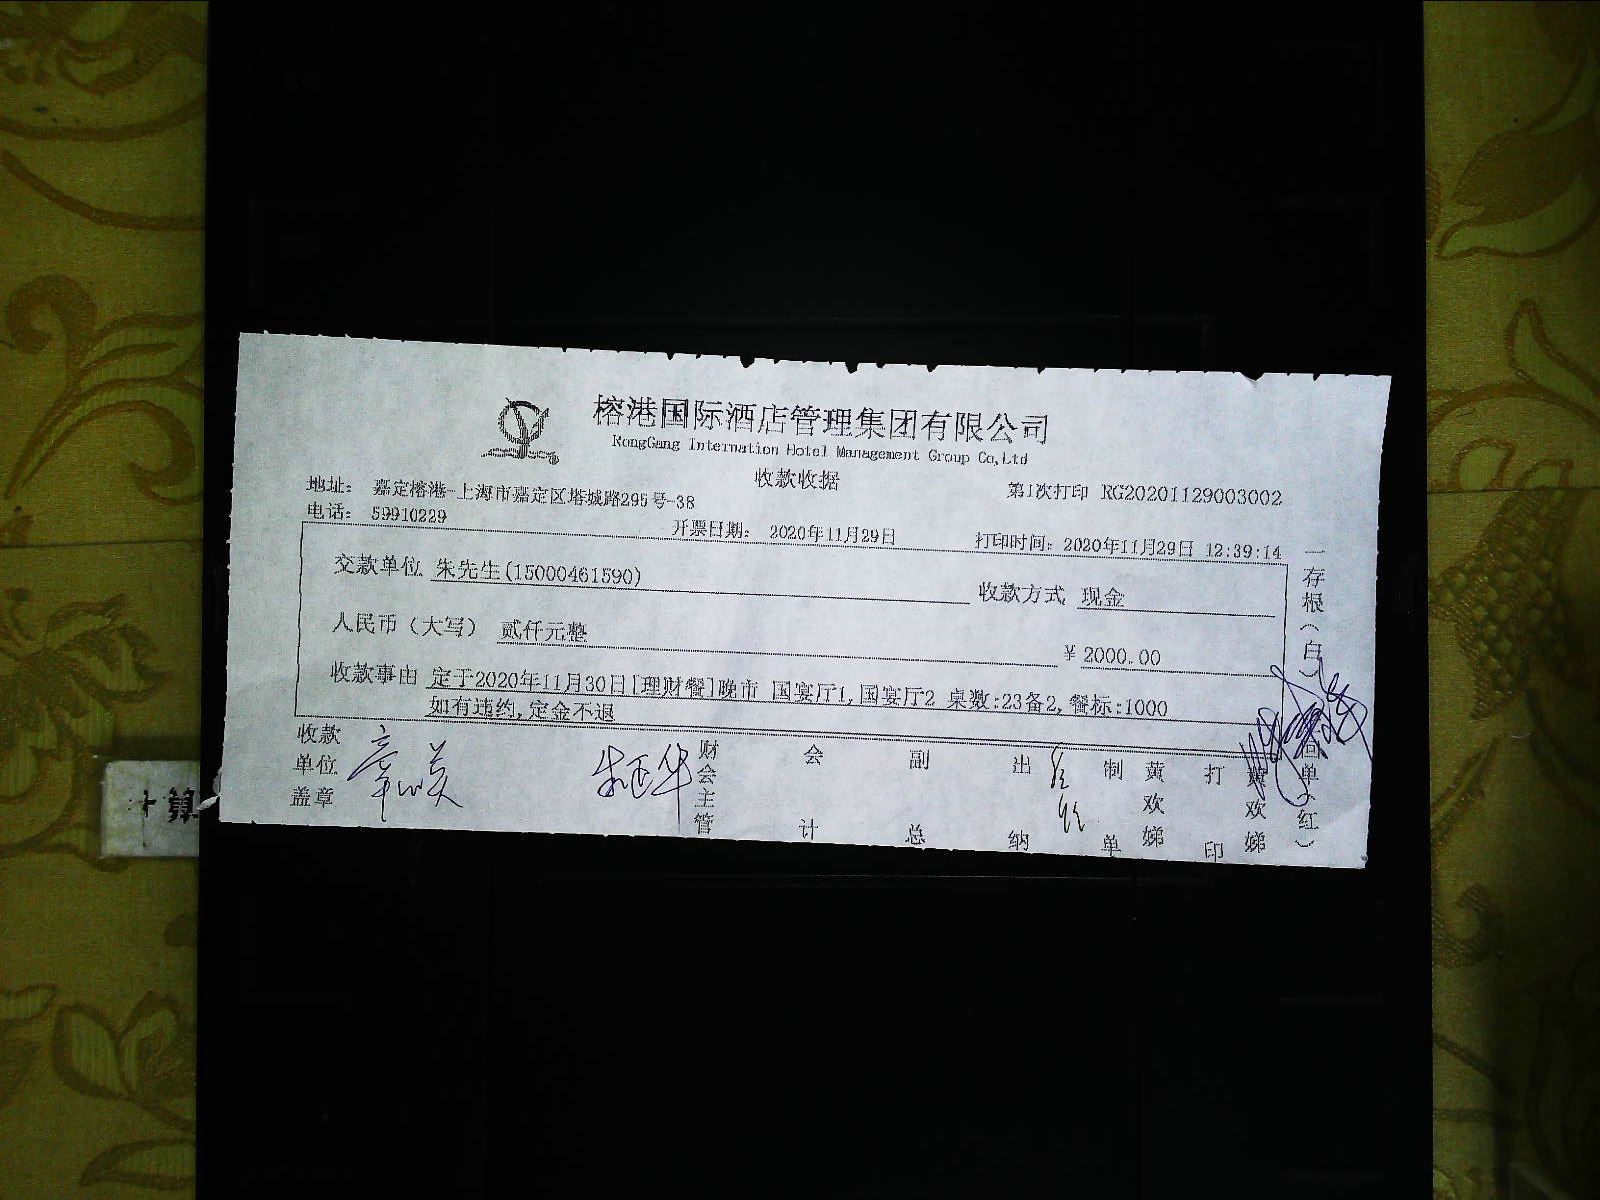 榕港国际酒店管理集团有限公司
RongGang Internation Hotel Management Group Co,Ltd
收款收据
地址： 嘉定榕港-上海市嘉定区塔城路295号-38
第1次打印 RG20201129003002
电话： 59910229
开票日期： 2020年11月29日
打印时间： 2020年11月29日 12:39:14
交款单位 朱先生(15000461590)
收款方式 现金
人民币（大写） 贰仟元整
¥ 2000.00
收款事由 定于2020年11月30日[理财餐]晚市 国宴厅1,国宴厅2 桌数:23备2,餐标:1000
如有违约,定金不退
收款单位盖章
财会主管
会计
副总
出纳
制单 黄欢娣
打印 黄欢娣
一存根（白）
回单（红）